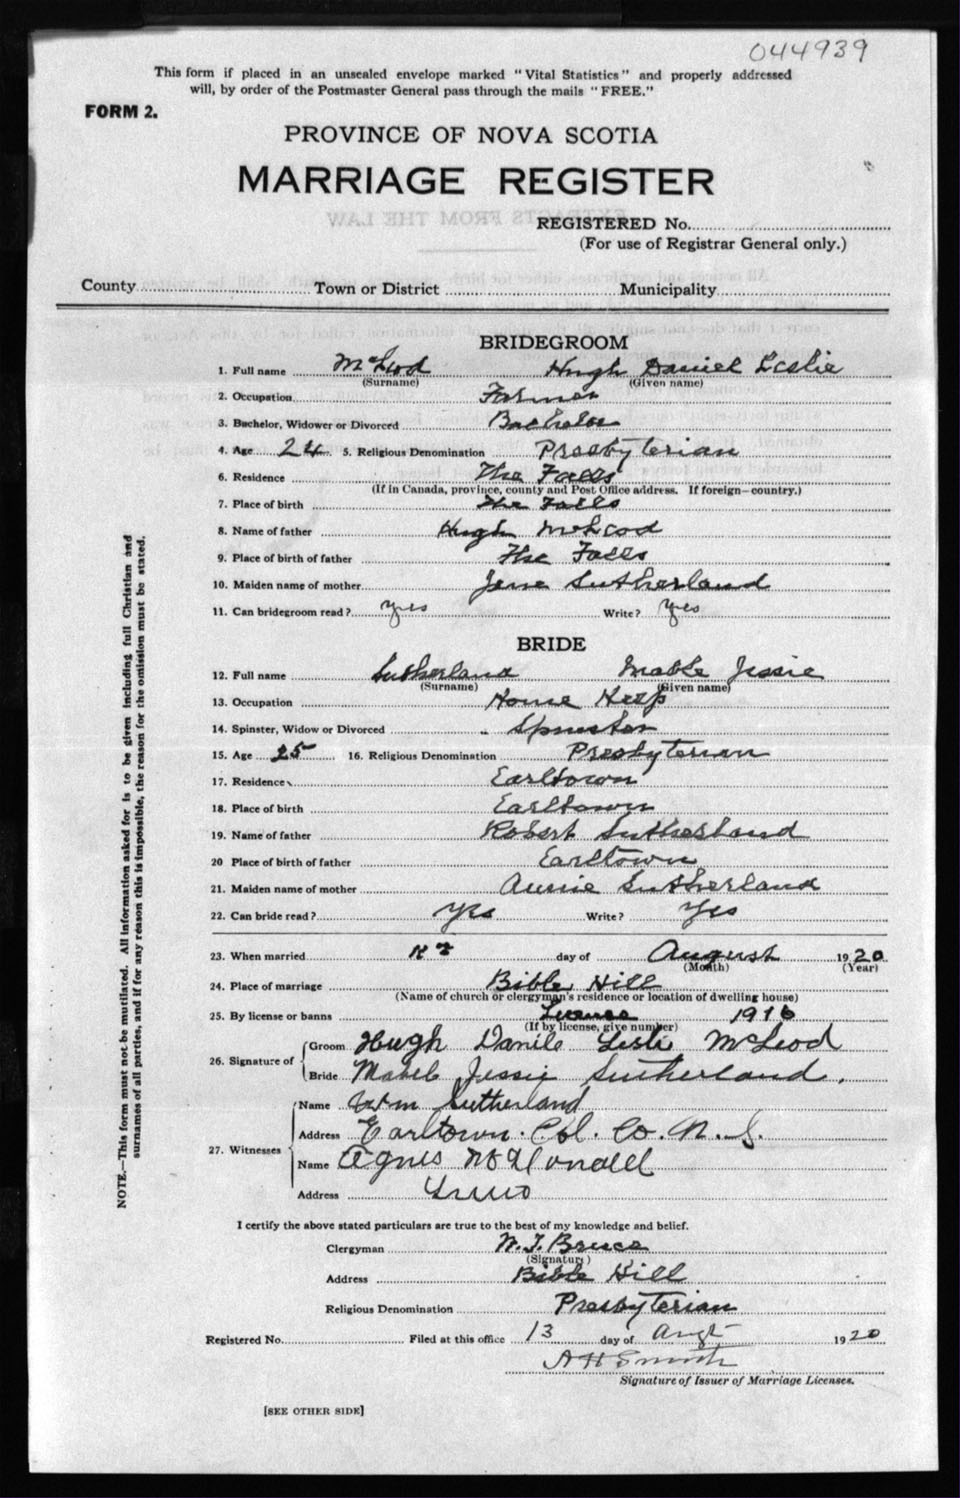 044939
This form if placed in an unsealed envelope marked "Vital Statistics" and properly addressed
will, by order of the Postmaster General pass through the mails "FREE."
FORM 2.
PROVINCE OF NOVA SCOTIA
MARRIAGE REGISTER
EXTRACTS FROM THE LAW
REGISTERED No.
(For use of Registrar General only.)
County Town or District Municipality
BRIDEGROOM
1. Full name McLeod Hugh Daniel Leslie
(Surname) (Given name)
2. Occupation Farmer
3. Bachelor, Widower or Divorced Bachelor
4. Age 24 5. Religious Denomination Presbyterian
6. Residence The Falls
(If in Canada, province, county and Post Office address. If foreign—country.)
7. Place of birth The Falls
8. Name of father Hugh McLeod
9. Place of birth of father The Falls
10. Maiden name of mother Jene Sutherland
11. Can bridegroom read? Yes Write? Yes
BRIDE
12. Full name Sutherland Mable Jessie
(Surname) (Given name)
13. Occupation House Keep
14. Spinster, Widow or Divorced Spinster
15. Age 25 16. Religious Denomination Presbyterian
17. Residence Earltown
18. Place of birth Earltown
19. Name of father Robert Sutherland
20 Place of birth of father Earltown
21. Maiden name of mother Annie Sutherland
22. Can bride read? Yes Write? Yes
23. When married day of August 1920
(Month) (Year)
24. Place of marriage Bible Hill
(Name of church or clergyman's residence or location of dwelling house)
25. By license or banns License 1916
(If by license, give number)
26. Signature of
Groom Hugh Danile Lesli McLeod
Bride Mabel Jessie Sutherland.
27. Witnesses
Name Wm Sutherland
Address Earltown. Col. Co. N. S.
Name Agnes McDonald
Address Truro
I certify the above stated particulars are true to the best of my knowledge and belief.
Clergyman W. T. Bruce
(Signature)
Address Bible Hill
Religious Denomination Presbyterian
Registered No. Filed at this office 13 day of Augt 1920
A H Smith
Signature of Issuer of Marriage Licenses.
[SEE OTHER SIDE]
NOTE.—This form must not be mutilated. All information asked for is to be given including full Christian and
surnames of all parties, and if for any reason this is impossible, the reason for the omission must be stated.